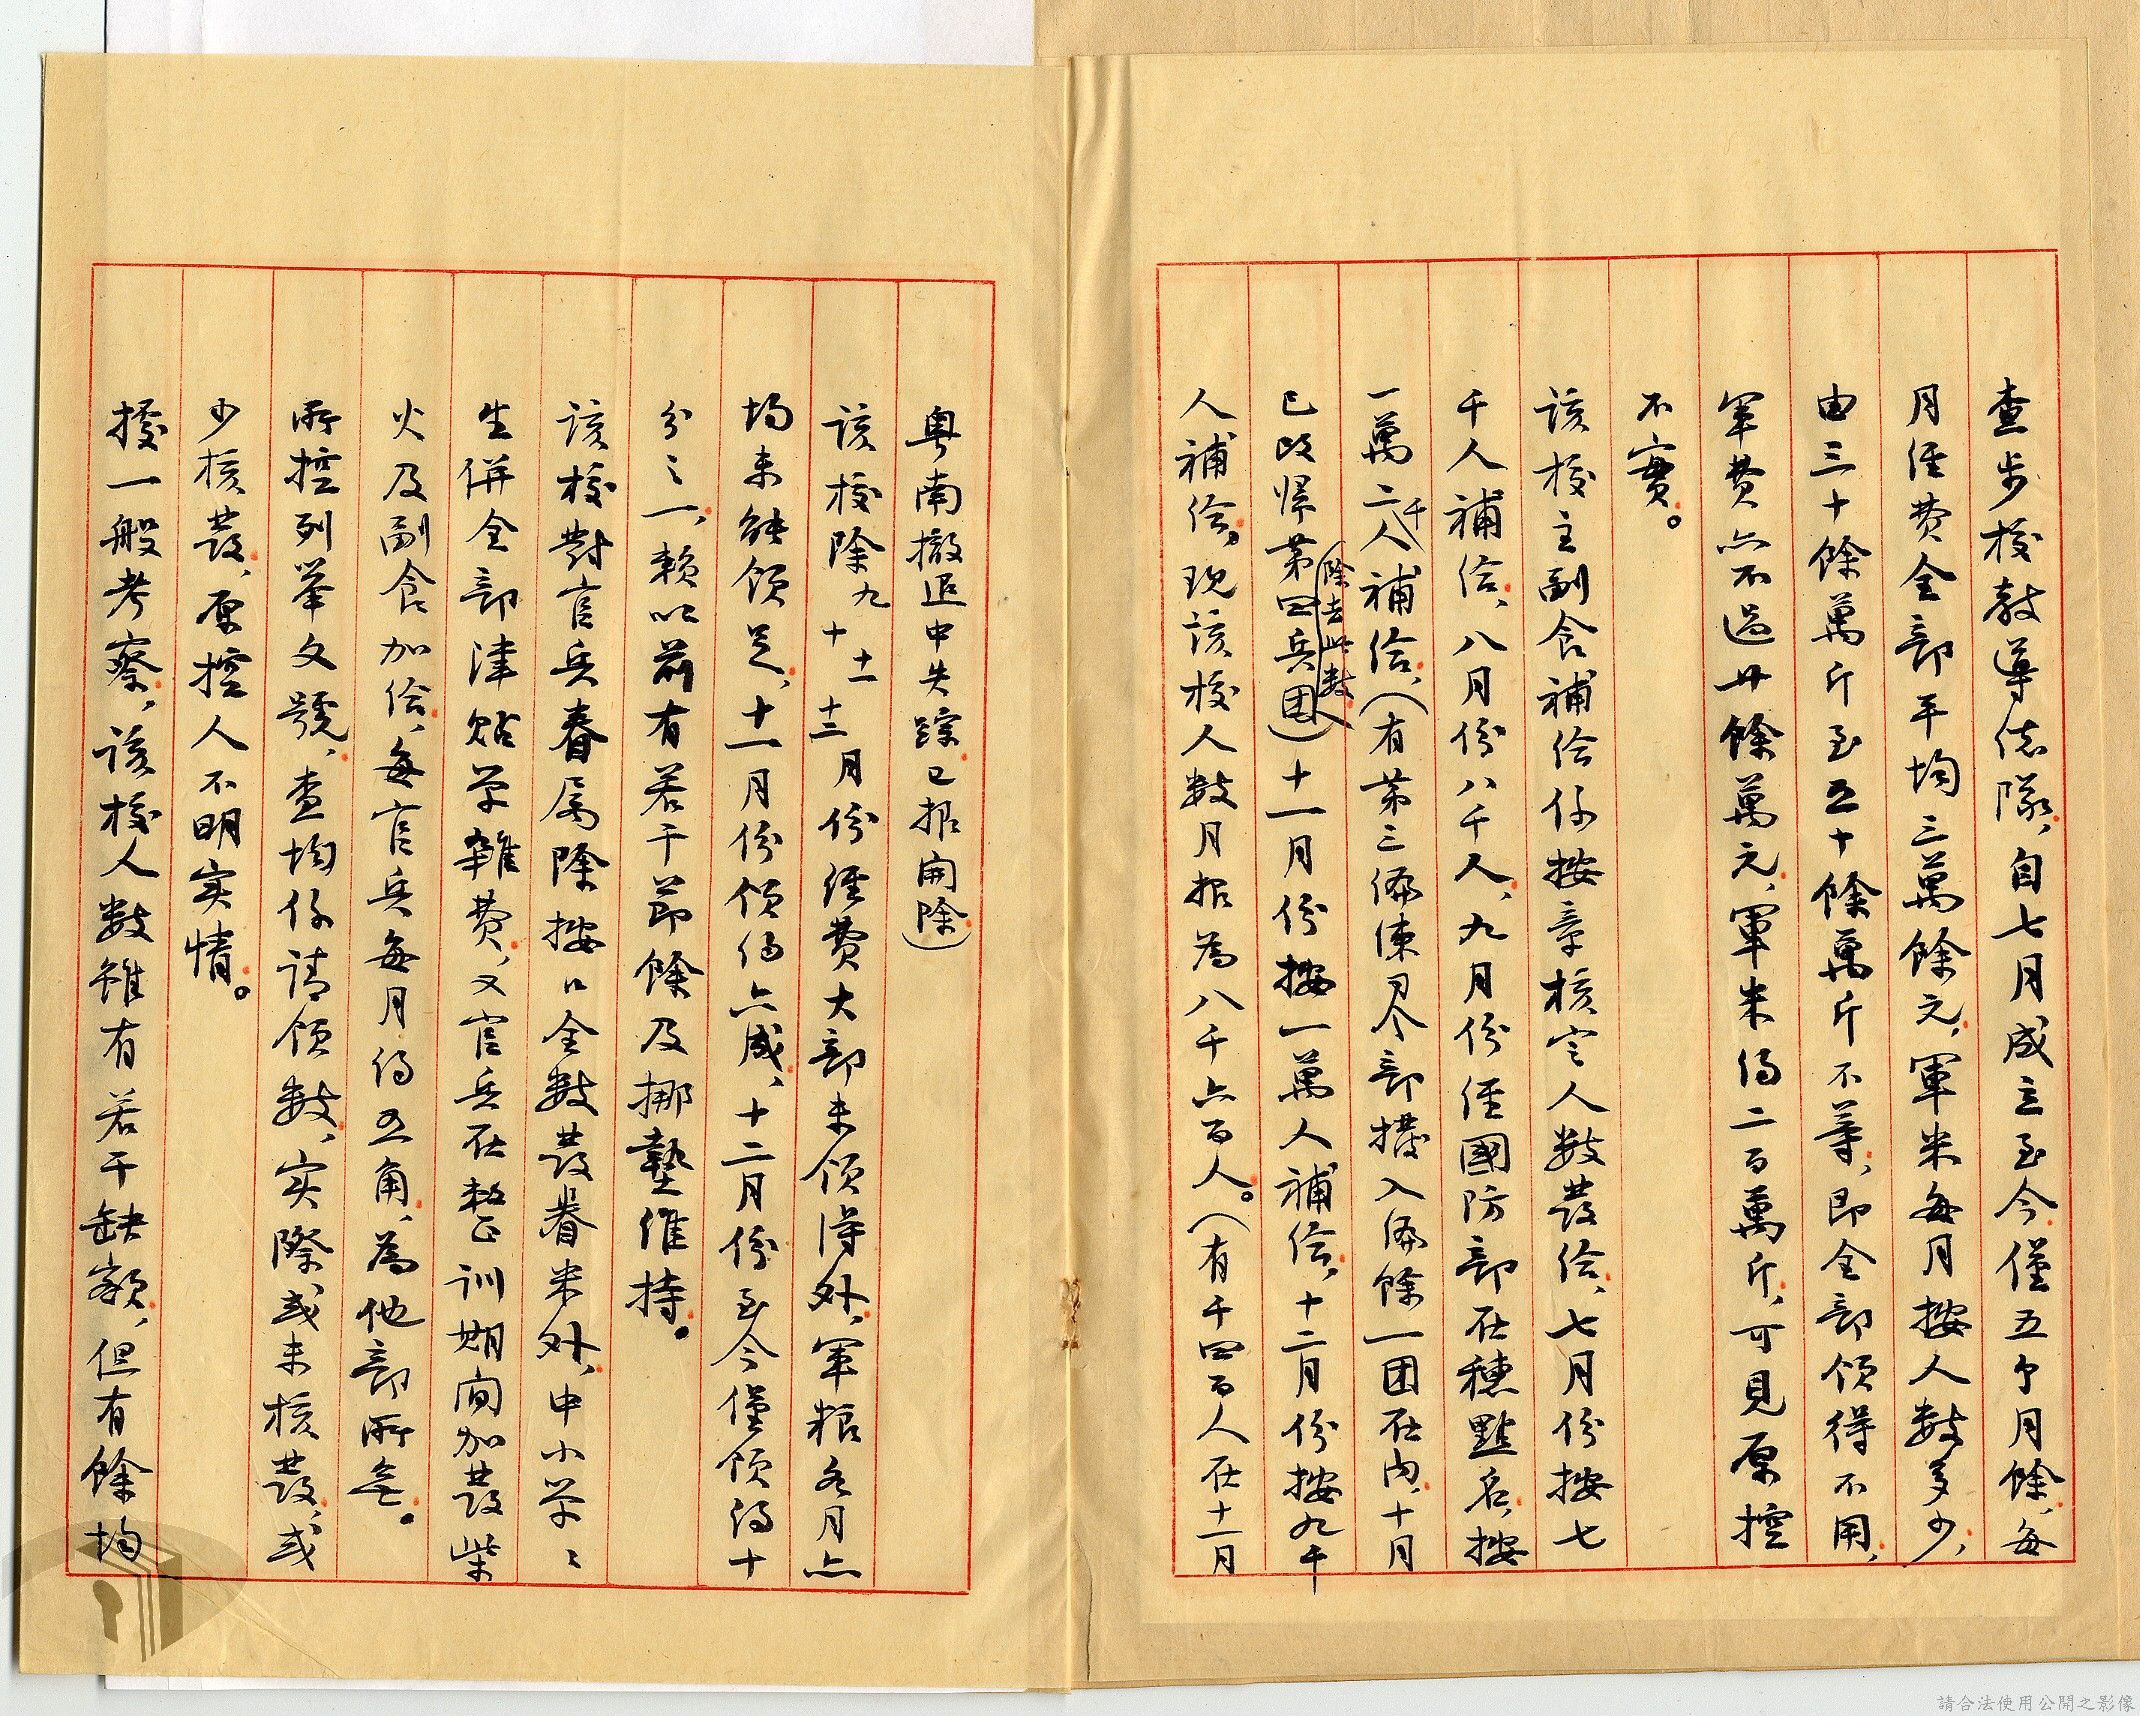 查步校教導總隊，自七月成立至今僅五個月餘，每
月經費全部平均三萬餘元，軍米每月按人數多少，
由三十餘萬斤至五十餘萬斤不等，即全部領得不用，
軍費亦不過廿餘萬元，軍米得二百萬斤，可見原控
不實。
該校主副食補給係按章核定人數發給，七月份按七
千人補給，八月份八千人，九月份經國防部在穗點名，按
一萬二千人補給，（有第三編練司令部撥入編餘一团在內，十月
已改歸第四兵团除去此數）十一月份按一萬人補給，十二月份按九千
人補給。現該校人數月报為八千六百人。（有千四百人在十一月
粵南撤退中失踪已报開除）
該校除九十十一十二月份經費大部未領得外，軍粮各月亦
均未能領足，十一月份領得六成，十二月份至今僅領得十
分之一，賴以前有若干節餘及挪墊維持。
該校對官兵眷属除按口全數發眷米外，中小学
生併全部津貼学雜費，又官兵在整訓期間加發柴
火及副食加給，每官兵每月得五角，為他部所無。
所控列举文號，查均係請領數，实際或未核發，或
少核發，原控人不明实情。
據一般考察，該校人數雖有若干缺額，但有餘均
請合法使用公開之影像